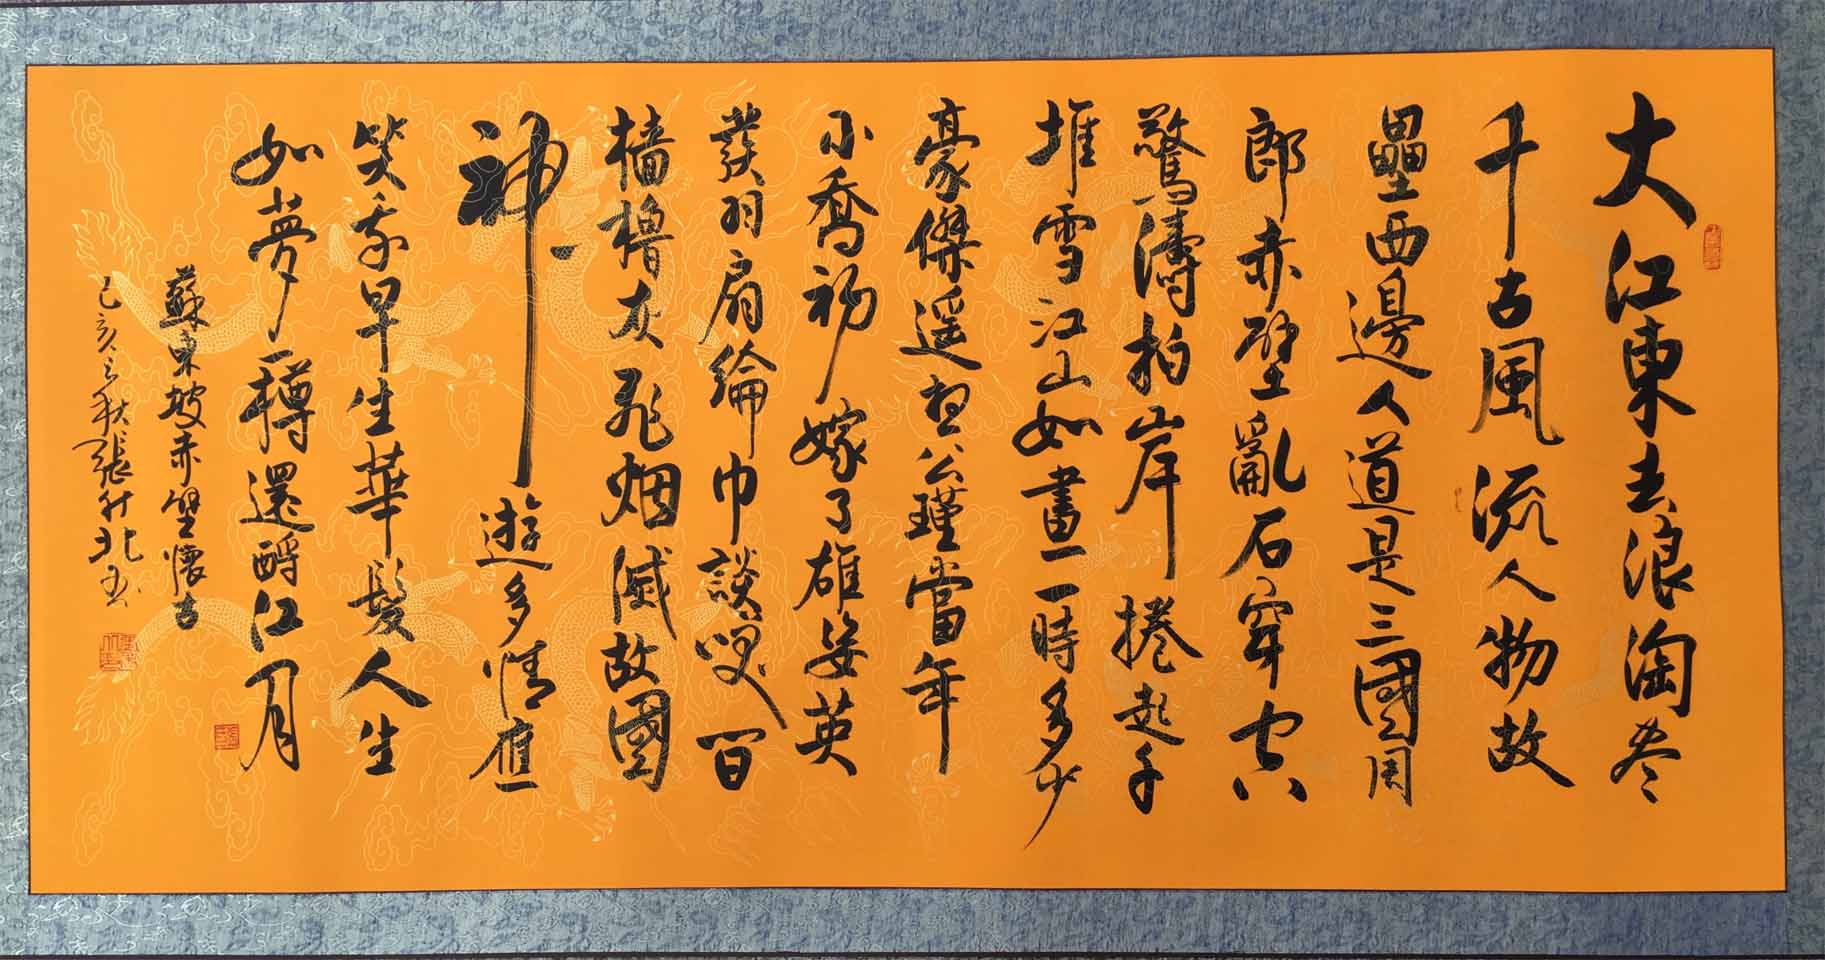 大江東去浪淘尽
千古風流人物故
壘西邊人道是三國周
郎赤壁亂石穿空
驚濤拍岸捲起千
堆雪江山如畫一時多少
豪傑遥想公瑾當年
小喬初嫁了雄姿英
發羽扇綸巾談笑間
檣櫓灰飛烟滅故國
神遊多情應
笑我早生華髮人生
如夢一樽還酹江月
蘇東坡赤壁懷古
己亥之秋張升北书